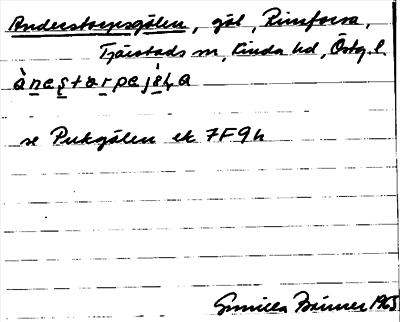 Anderstorpsgölen, göl, Rimforsa,
Tjärstads sn, Kinda hd, Östg. l.
àneștarpejö̀ḷa
se Pukgölen ek 7F9h
Gunilla 1965